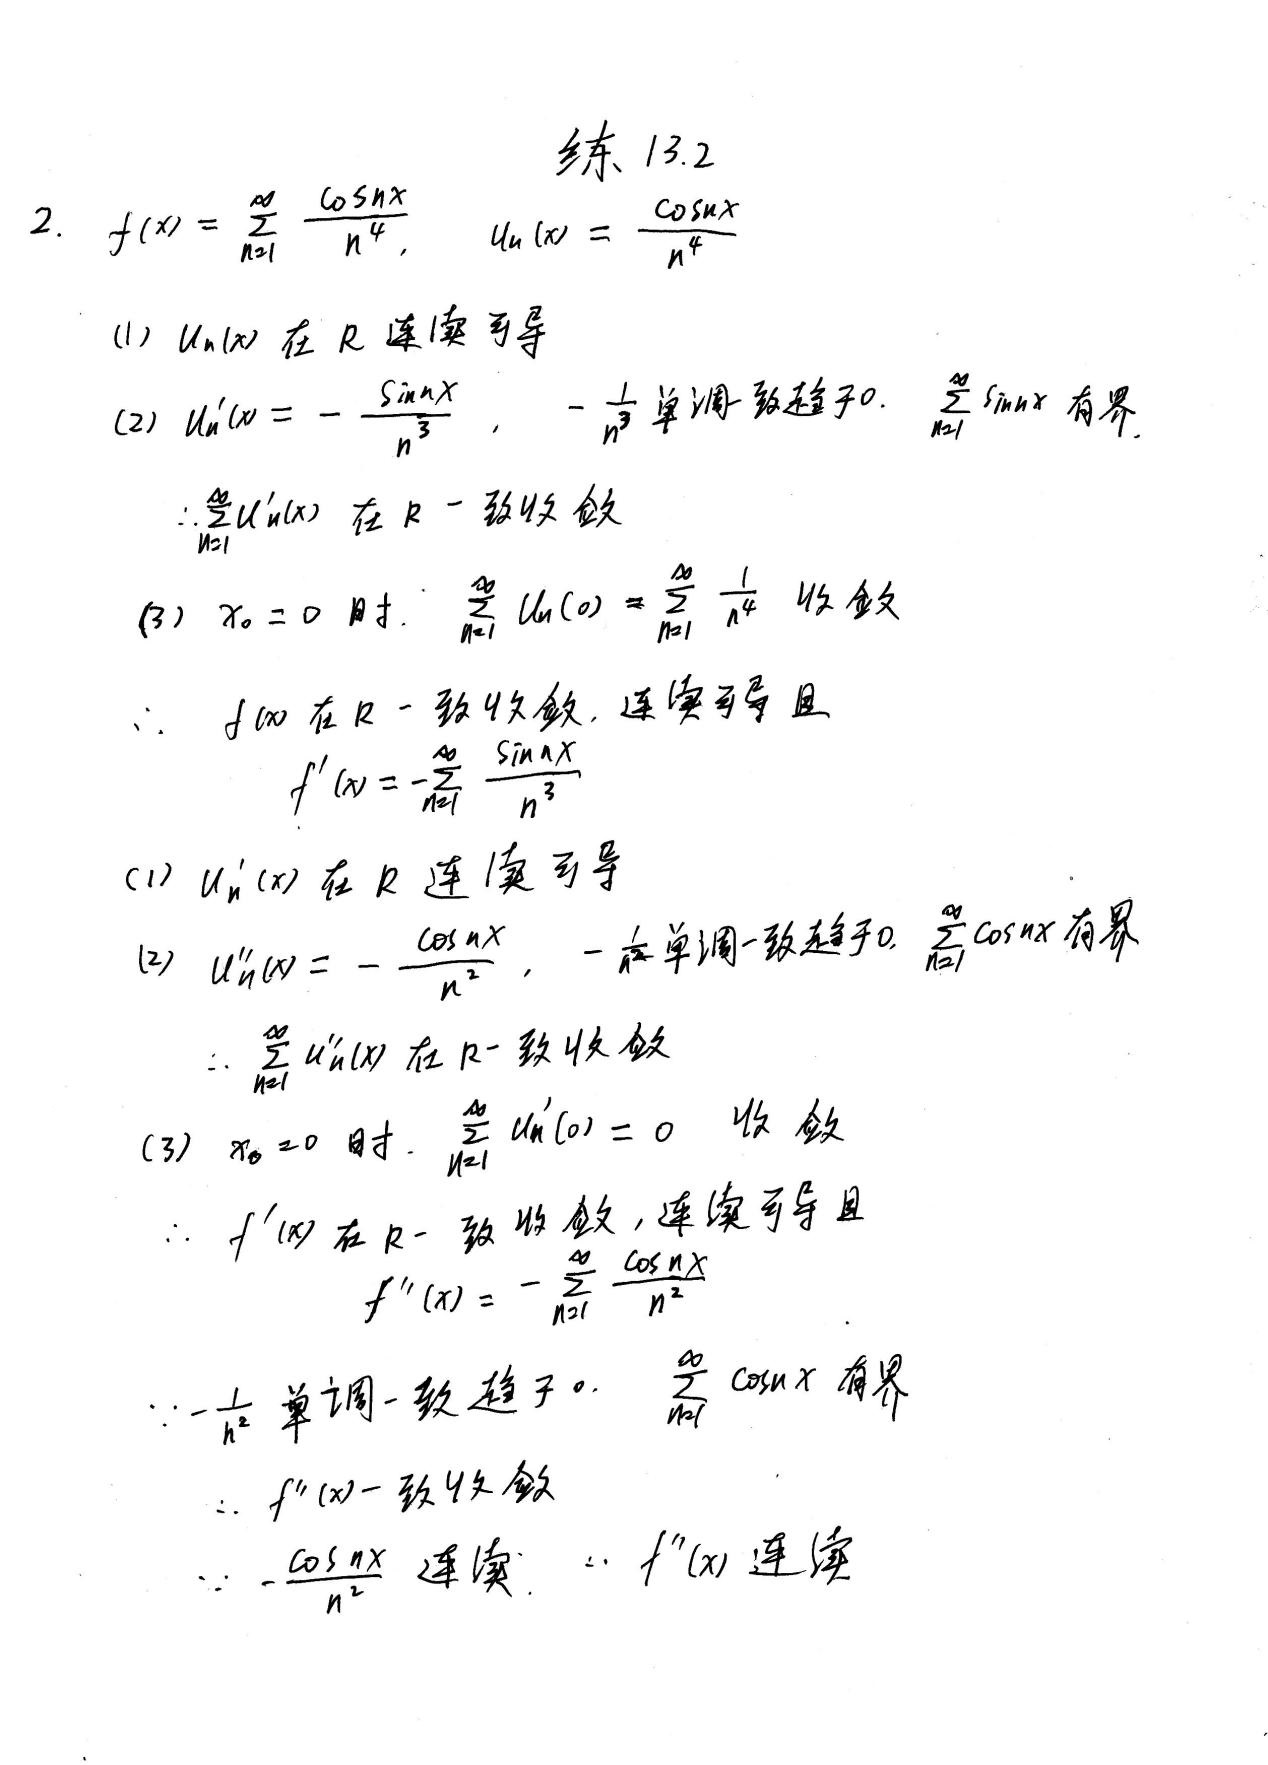 练 13.2
2. f(x) = \sum_{n=1}^{∞} \frac{cosnx}{n^4}, u_n(x) = \frac{cosnx}{n^4}
(1) u_n(x) 在 R 连续可导
(2) u_n'(x) = - \frac{sinnx}{n^3}, -\frac{1}{n^3} 单调一致趋于0. \sum_{n=1}^{∞} sinnx 有界.
∴ \sum_{n=1}^{∞} u_n'(x) 在 R 一致收敛
(3) x_0 = 0 时. \sum_{n=1}^{∞} u_n(0) = \sum_{n=1}^{∞} \frac{1}{n^4} 收敛
∴ f(x) 在 R 一致收敛, 连续可导且
f'(x) = -\sum_{n=1}^{∞} \frac{sinnx}{n^3}
(1) u_n'(x) 在 R 连续可导
(2) u_n''(x) = - \frac{cosnx}{n^2}, -\frac{1}{n^2} 单调一致趋于0. \sum_{n=1}^{∞} cosnx 有界
∴ \sum_{n=1}^{∞} u_n''(x) 在 R 一致收敛
(3) x_0 = 0 时. \sum_{n=1}^{∞} u_n'(0) = 0 收敛
∴ f'(x) 在 R 一致收敛, 连续可导且
f''(x) = -\sum_{n=1}^{∞} \frac{cosnx}{n^2}
∵ -\frac{1}{n^2} 单调一致趋于0. \sum_{n=1}^{∞} cosnx 有界
∴ f''(x) 一致收敛
∵ -\frac{cosnx}{n^2} 连续. ∴ f''(x) 连续